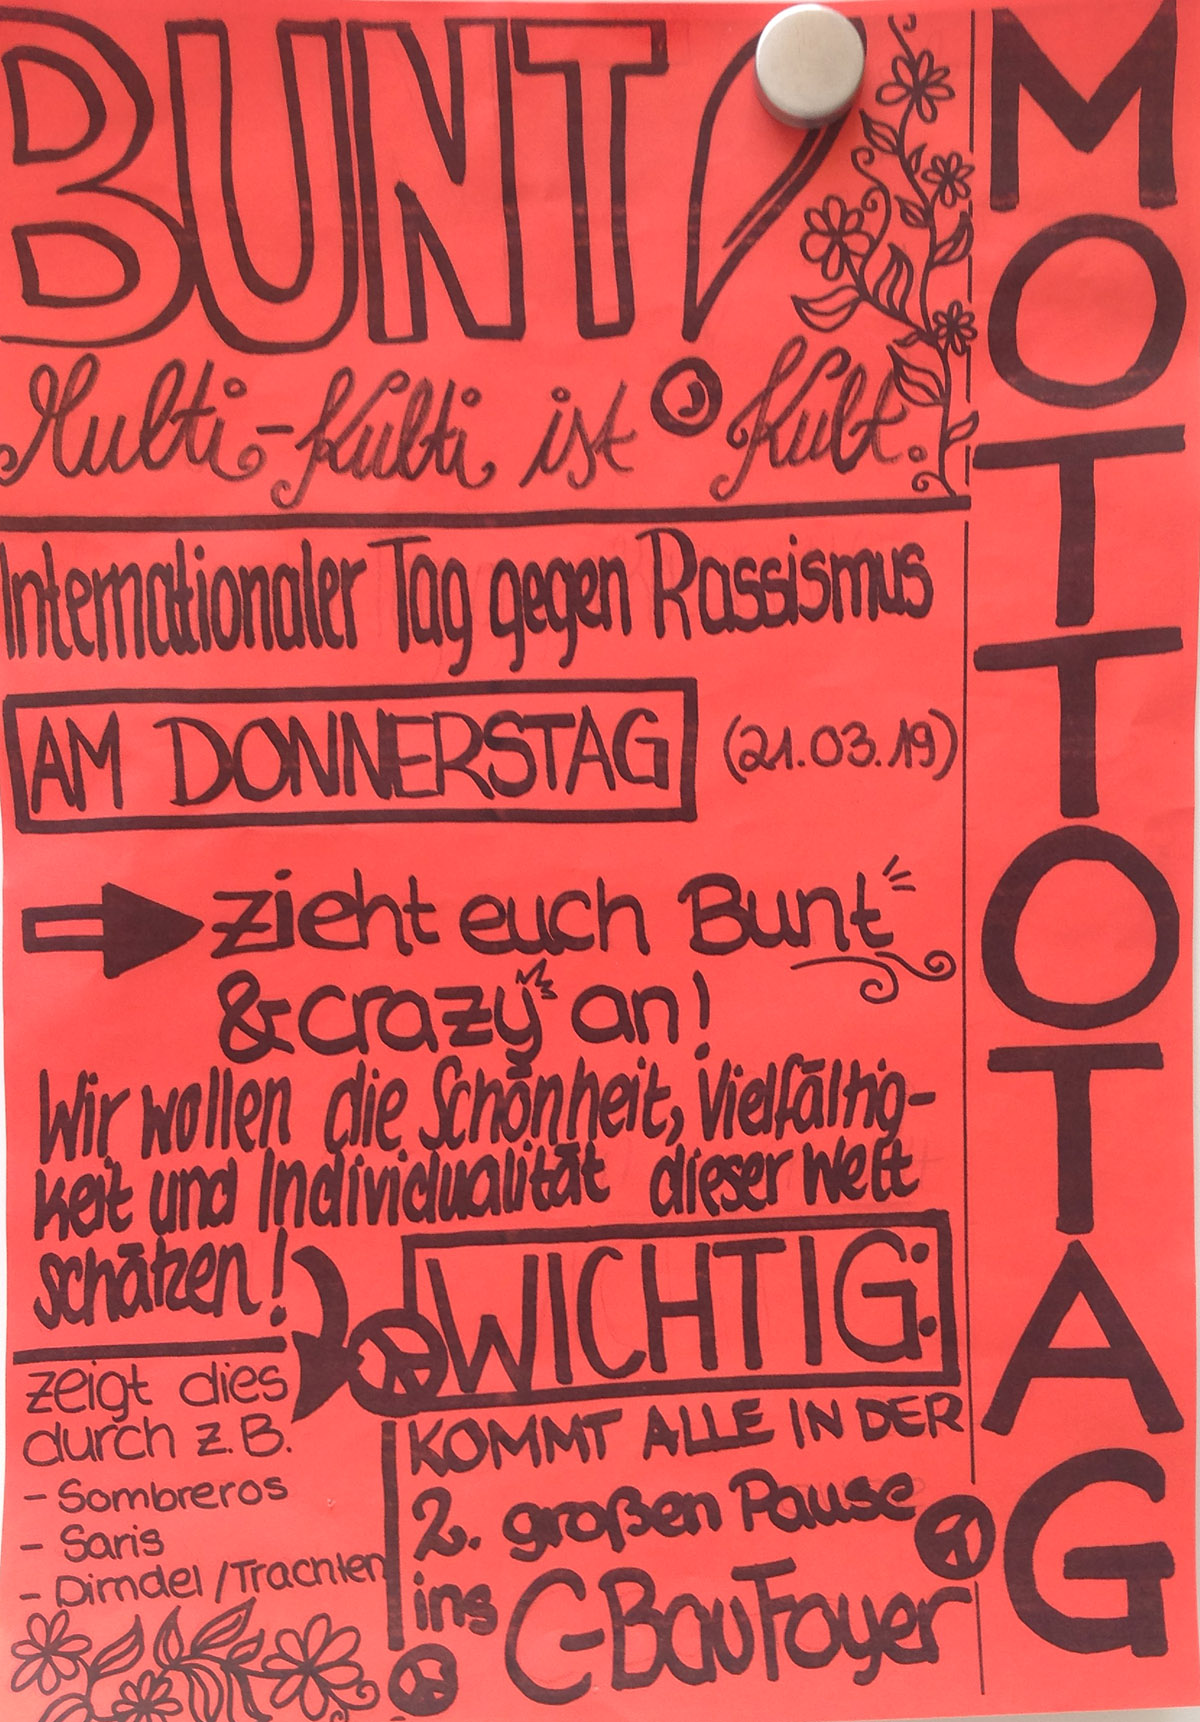 BUNT!
Multi-Kulti ist Kult.
Internationaler Tag gegen Rassismus
AM DONNERSTAG (21.03.19)
zieht euch Bunt
& crazy an!
Wir wollen die Schönheit, Vielfältig-
keit und Individualität dieser Welt
schätzen!
zeigt dies
durch z.B.
- Sombreros
- Saris
- Dirndel/Trachten
WICHTIG:
KOMMT ALLE IN DER
2. großen Pause
ins C-Bau Foyer
MOTTOTAG